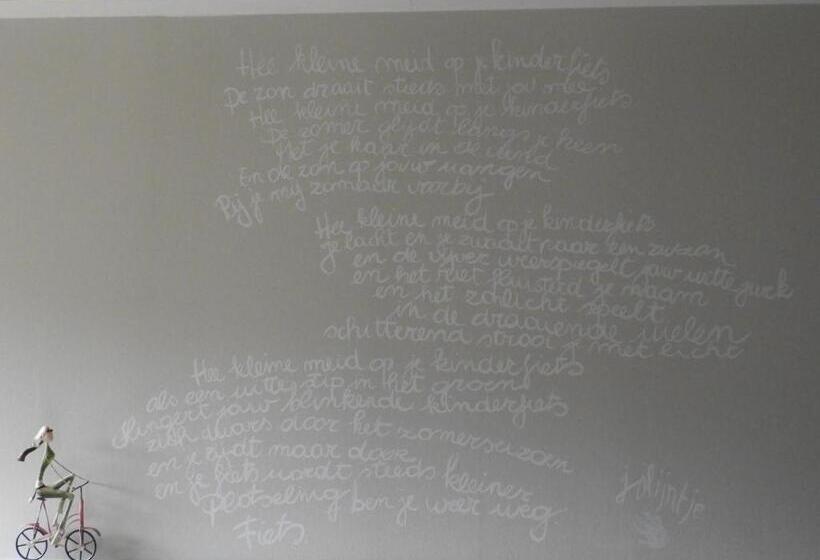 Hee kleine meid op je kinderfiets
De zon draait steeds met jou mee
Hee kleine meid op je kinderfiets
De zomer glijdt langs je heen
Met je haar in de wind
En de zon op jouw wangen
Rij je mij zomaar voorbij
Hee kleine meid op je kinderfiets
je lacht en je zwaait naar een zwaan
en de vijver weerspiegelt jouw witte jurk
en het riet fluistert je naam
en het zonlicht speelt
in de draaiende wielen
schitterend strooi je met licht
Hee kleine meid op je kinderfiets
als een witte stip in het groen
slingert jouw blinkende kinderfiets
zich dwars door het zomerseizoen
en je rijdt maar door
en je fiets wordt steeds kleiner
Plotseling ben je weer weg
Fiets
jolijntje